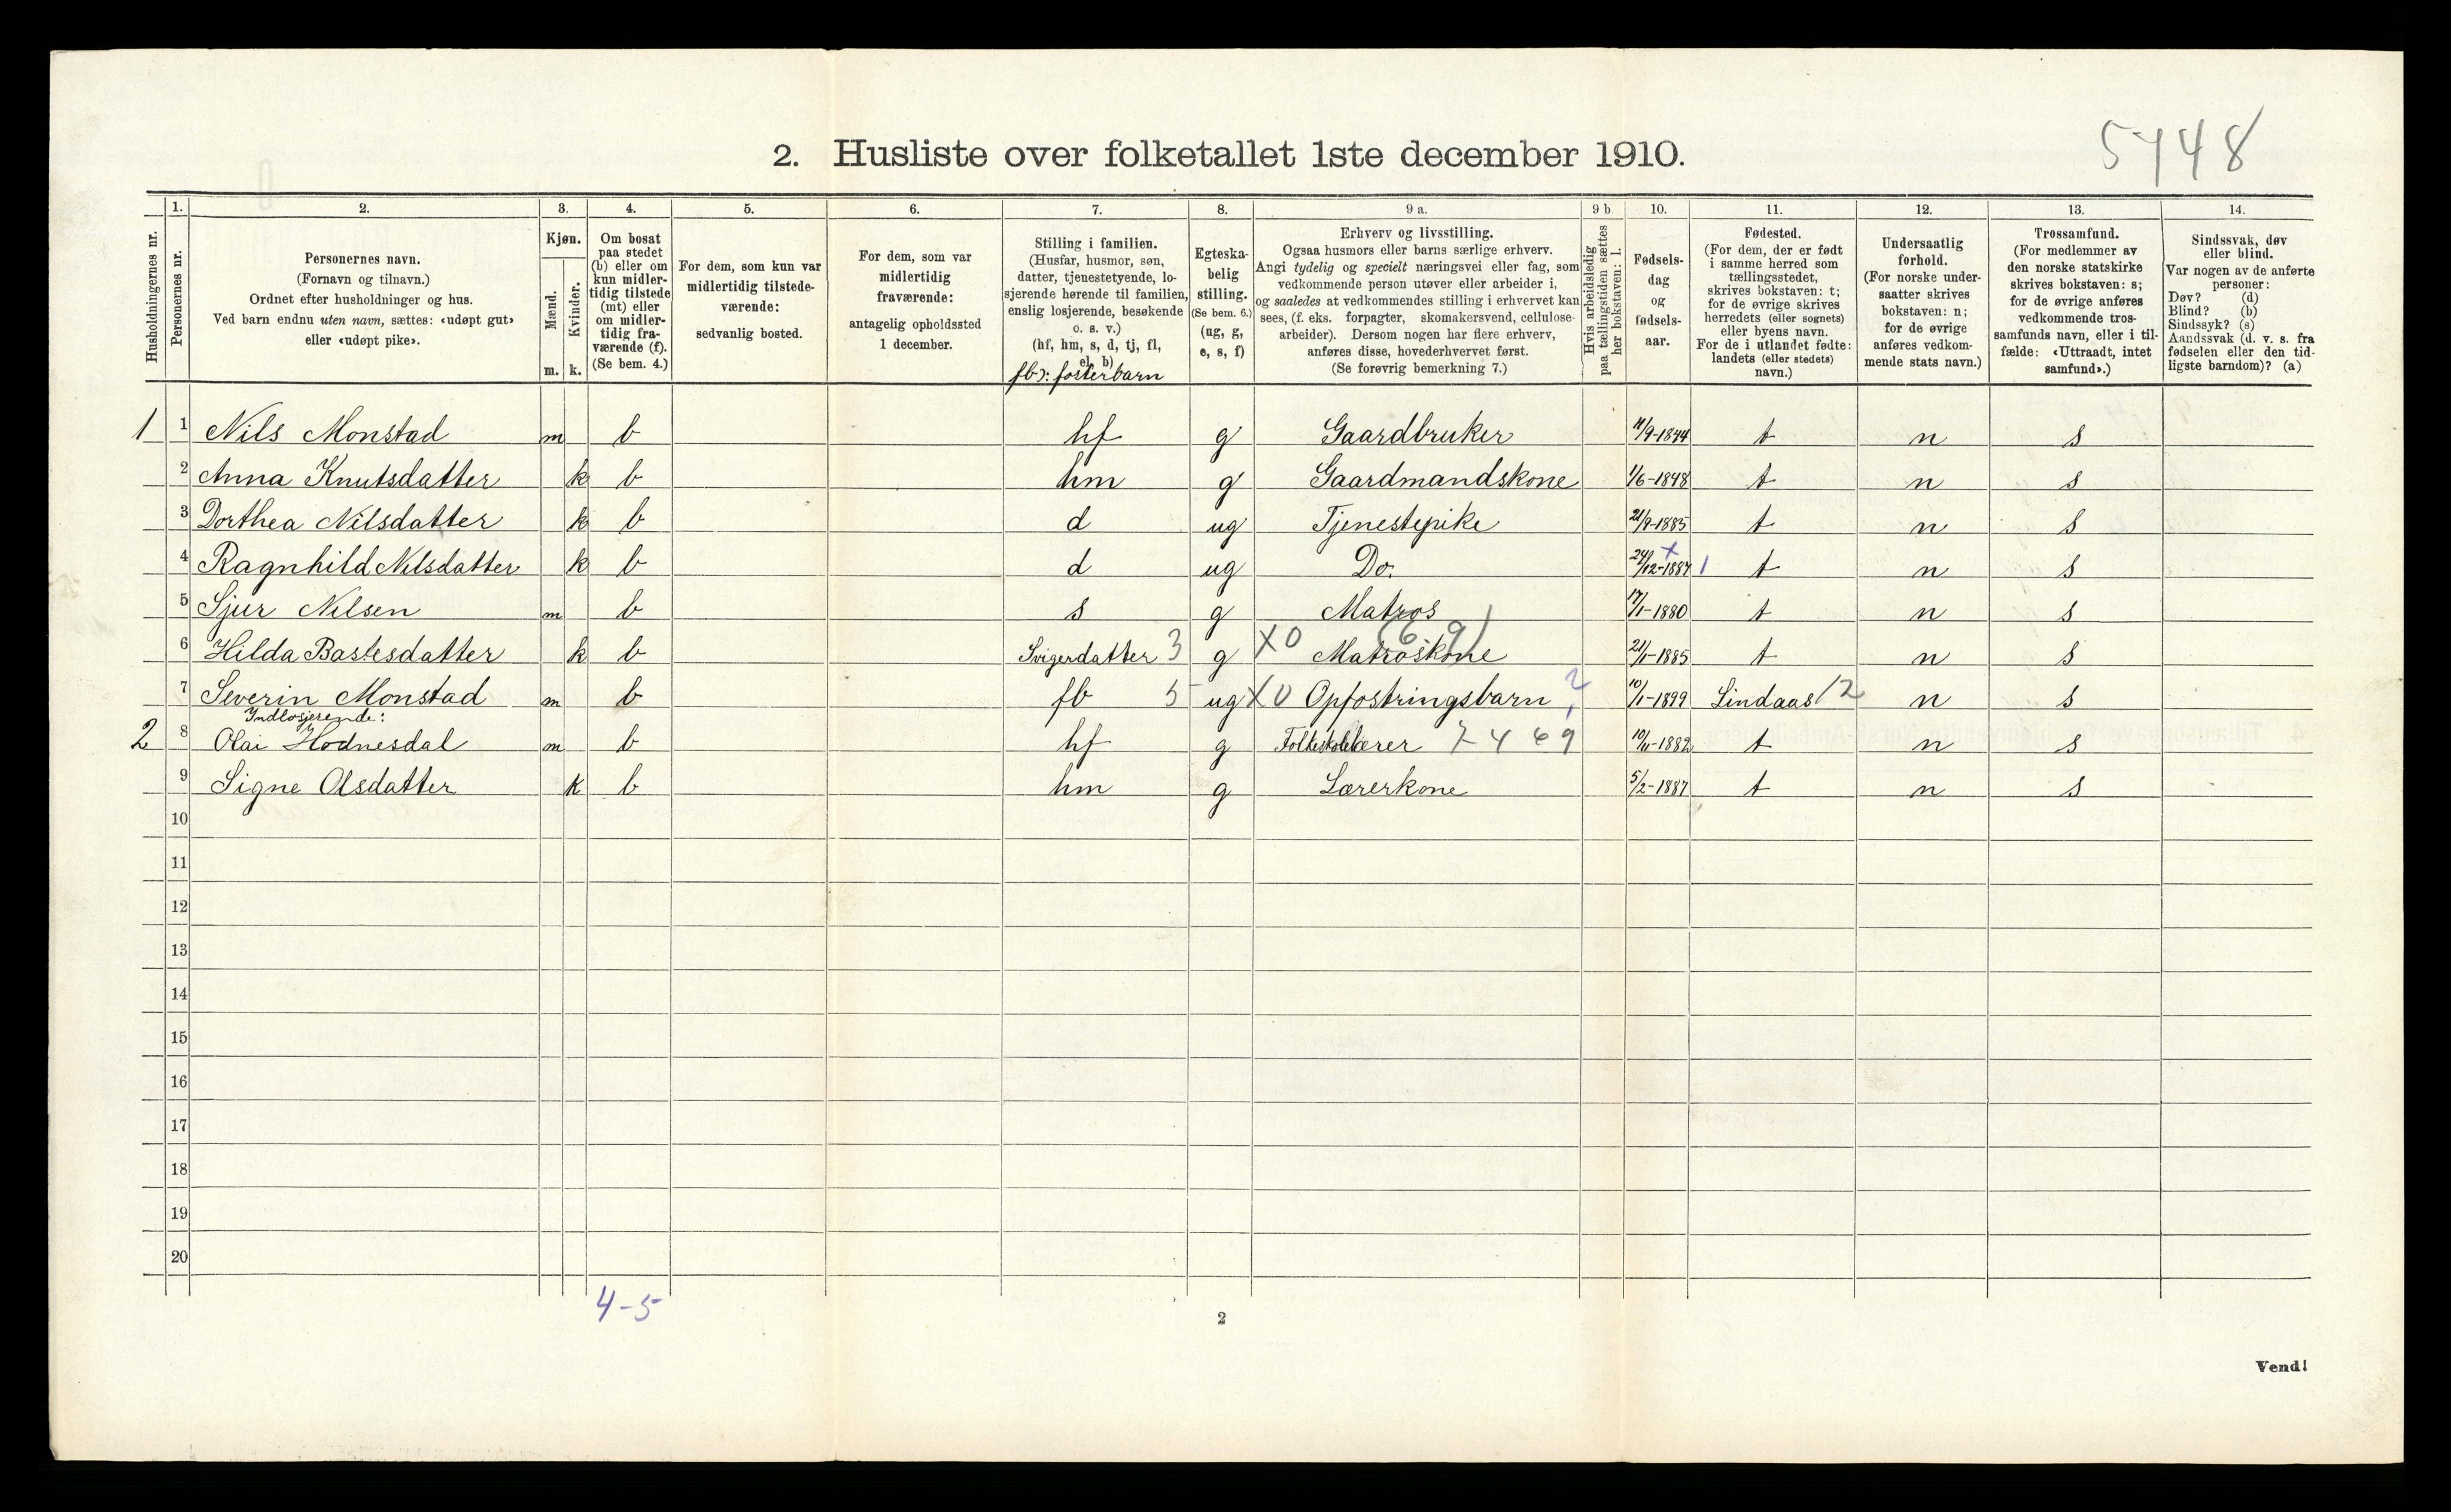 5448
2. Husliste over folketallet 1ste december 1910.
1. 2. 3. 4. 5. 6. 7. 8. 9 a. 9 b 10. 11. 12. 13. 14.
Husholdningernes nr.
Personernes nr.
Personernes navn.
(Fornavn og tilnavn.)
Ordnet efter husholdninger og hus.
Ved barn endnu uten navn, sættes: «udøpt gut»
eller «udøpt pike».
Kjøn.
Mænd.
Kvinder.
m. k.
Om bosat
paa stedet
(b) eller om
kun midler-
tidig tilstede
(mt) eller
om midler-
tidig fra-
værende (f).
(Se bem. 4.)
For dem, som kun var
midlertidig tilstede-
værende:
sedvanlig bosted.
For dem, som var
midlertidig
fraværende:
antagelig opholdssted
1 december.
Stilling i familien.
(Husfar, husmor, søn,
datter, tjenestetyende, lo-
sjerende hørende til familien,
enslig losjerende, besøkende
o. s. v.)
(hf, hm, s, d, tj, fl,
el, b)
fb): fosterbarn
Egteska-
belig
stilling.
(Se bem. 6.)
(ug, g,
e, s, f)
Erhverv og livsstilling.
Ogsaa husmors eller barns særlige erhverv.
Angi tydelig og specielt næringsvei eller fag, som
vedkommende person utøver eller arbeider i,
og saaledes at vedkommendes stilling i erhvervet kan
sees, (f. eks. forpagter, skomakersvend, cellulose-
arbeider). Dersom nogen har flere erhverv,
anføres disse, hovederhvervet først.
(Se forøvrig bemerkning 7.)
Hvis arbeidsledig
paa tællingstiden sættes
her bokstaven: l.
Fødsels-
dag
og
fødsels-
aar.
Fødested.
(For dem, der er født
i samme herred som
tællingsstedet,
skrives bokstaven: t;
for de øvrige skrives
herredets (eller sognets)
eller byens navn.
For de i utlandet fødte:
landets (eller stedets)
navn.)
Undersaatlig
forhold.
(For norske under-
saatter skrives
bokstaven: n;
for de øvrige
anføres vedkom-
mende stats navn.)
Trossamfund.
(For medlemmer av
den norske statskirke
skrives bokstaven: s;
for de øvrige anføres
vedkommende tros-
samfunds navn, eller i til-
fælde: «Uttraadt, intet
samfund».)
Sindssvak, døv
eller blind.
Var nogen av de anførte
personer:
Døv? (d)
Blind? (b)
Sindssyk? (s)
Aandssvak (d. v. s. fra
fødselen eller den tid-
ligste barndom)? (a)
1 1 Nils Monstad m b hf g Gaardbruker 11/9-1844 t n s
2 Anna Knutsdatter k b hm g Gaardmandskone 1/6-1848 t n s
3 Dorthea Nilsdatter k b d ug Tjenestepike 21/9-1885 t n s
4 Ragnhild Nilsdatter k b d ug Do. 24/12-1887 x 1 t n s
5 Sjur Nilsen m b s g Matros 17/1-1880 t n s
6 Hilda Bastesdatter k b Svigerdatter 3 g X0 Matroskone (E 9) 21/1-1885 t n s
7 Severin Monstad m b fb 5 ug X0 Opfostringsbarn 10/1-1899 Lindaas 12 n s
Indlosjerende:
2 8 Olai Hodnesdal m b hf g Folkeskolelærer 7469 10/11-1882 t n s
9 Signe Olsdatter k b hm g Lærerkone 5/2-1887 t n s
10
11
12
13
14
15
16
17
18
19
20
4-5
2
Vend!